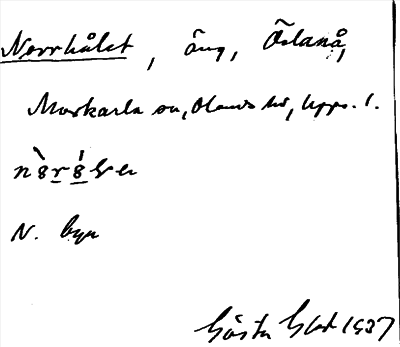 Norrhålet, äng, Ölanå,
Morkarla sn, Olands hd, Upps. l.
N. byn
Gösta 1937